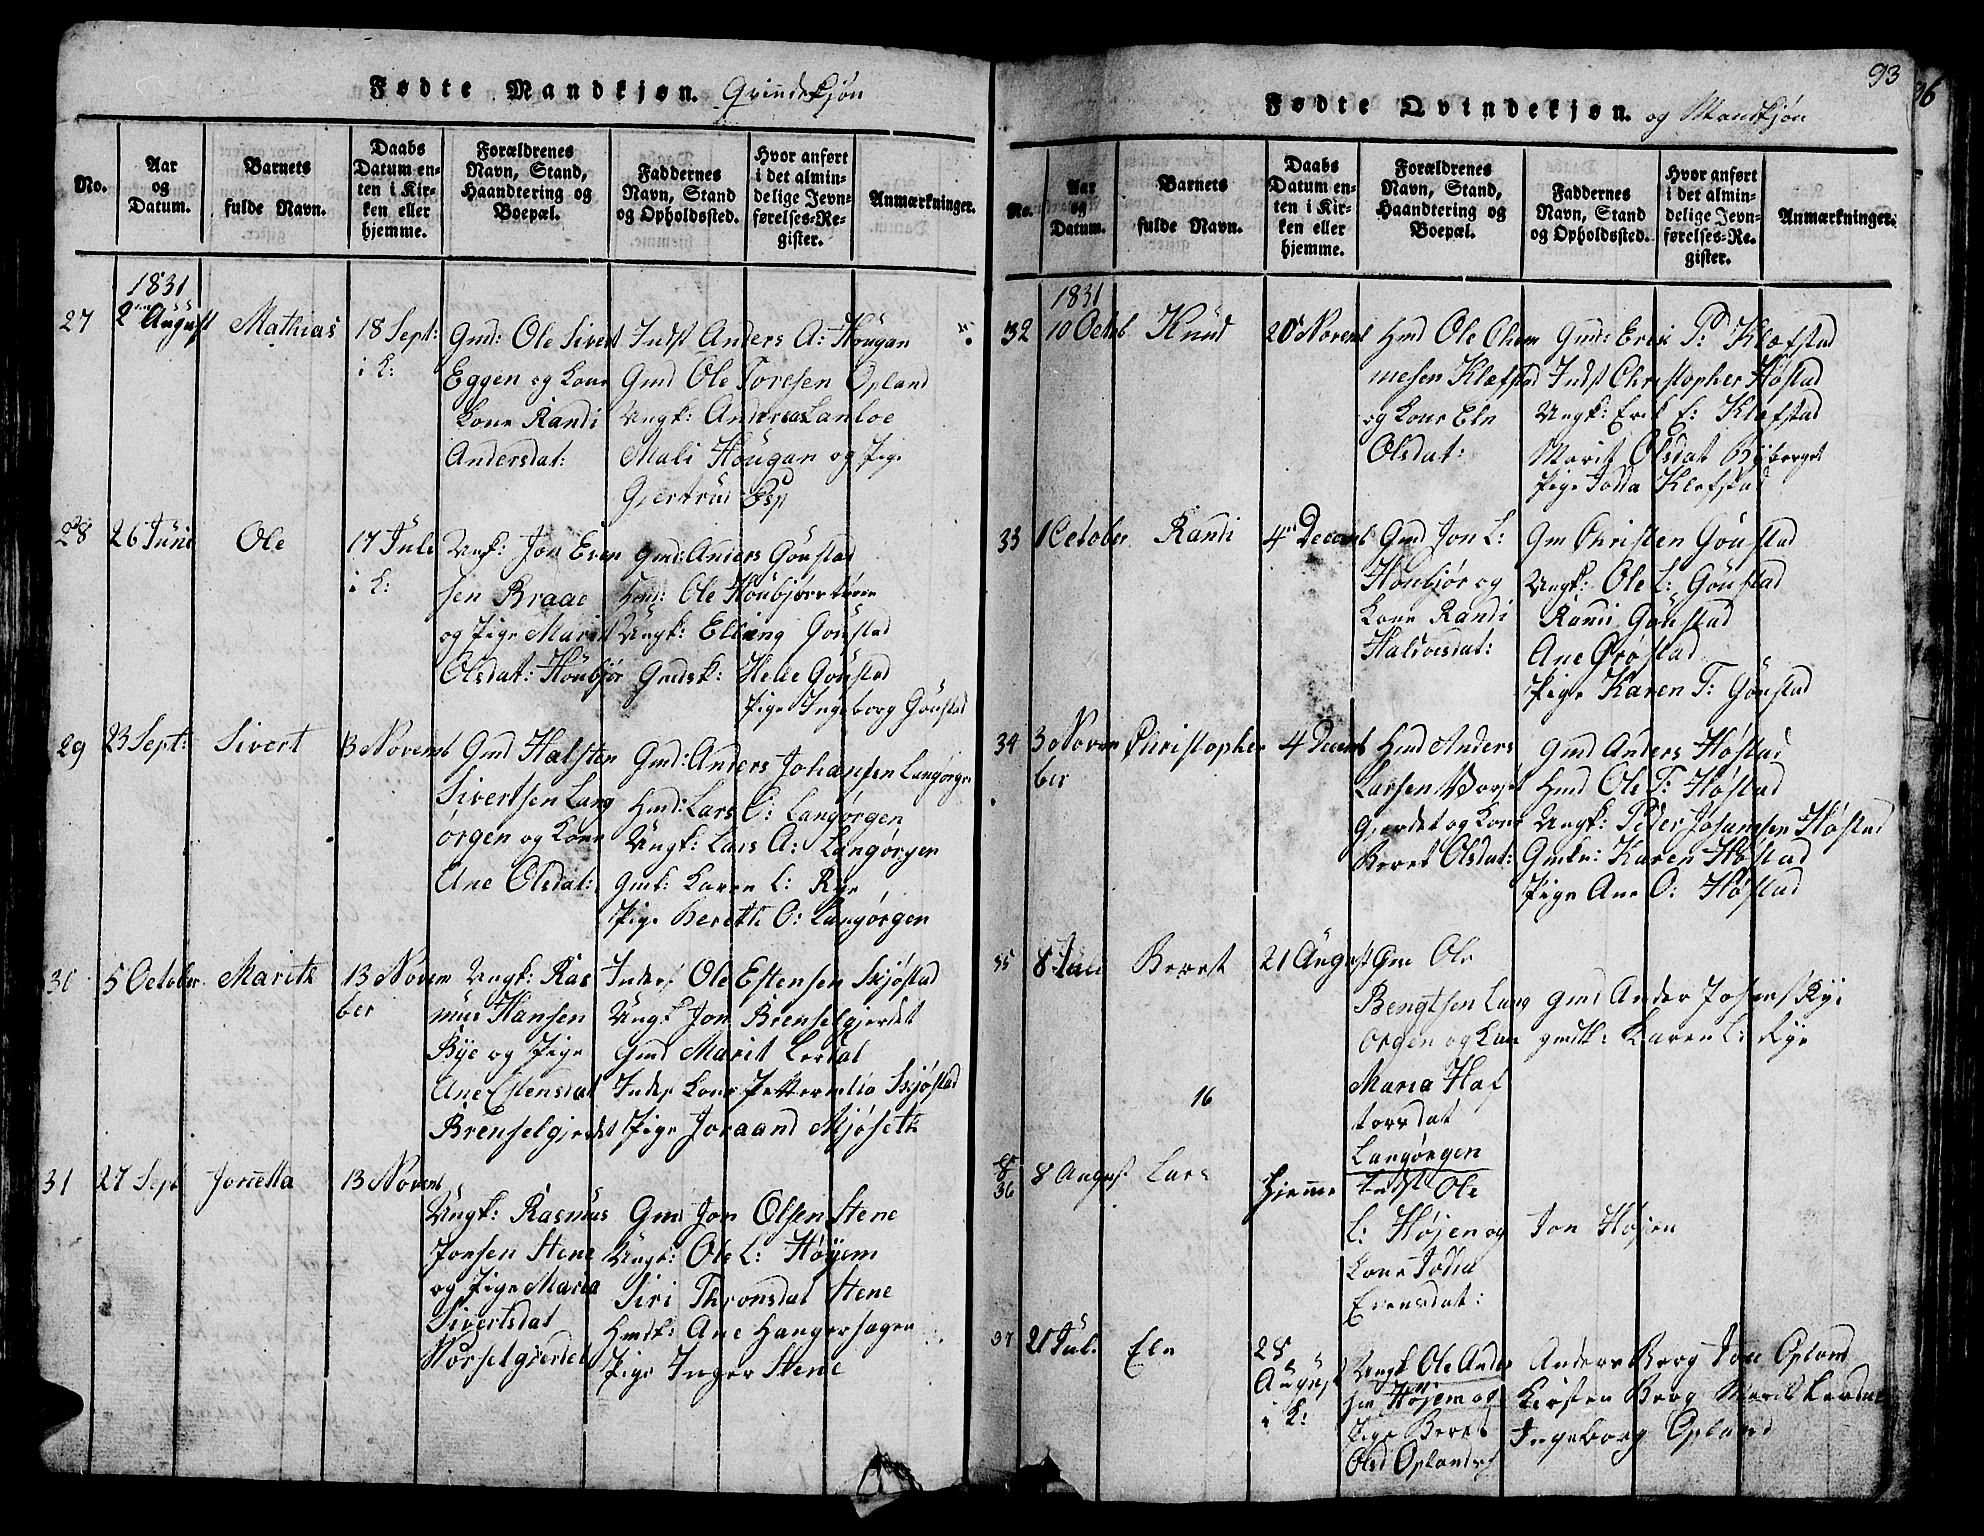 Fødte Mandkjøn. Qvindekjøn
No.
Aar og Datum.
Barnets fulde Navn.
Daabs Datum enten i Kirken eller hjemme.
Forældrenes Navn, Stand, Haandtering og Boepæl.
Faddernes Navn, Stand og Opholdssted.
Hvor anført i det almindelige Jevnførelses-Register.
Anmærkninger.
1831
27
2 August
Mathias
18 Sept:
i K:
Gmd: Ole Sivert
Eggen og Kone
Kone Randi
Andersdat:
Indst Anders A: Höugan
Gmd Ole Toresen Opland
Ungk: Anders Lanloe
Mali Höugan og Pige
Gjertrud Esp
28
26 Juni
Ole
17 Juli
i K:
Ungk: Jon Even
sen Braae
og Pige Marit
Olsdat: Höubjør
Gmd: Anders Göustad
Hmd: Ole Höubjør
Ungk: Elling Göustad
Gmdsk: Göustad
Pige Ingeborg Göustad
29
23 Sept:
Sivert
13 Novemb
Gmd Halsten
Sivertsen Lang
örgen og Kone
Ane Olsdat:
Gmd: Anders Johansen Langørgen
Hmd: Lars O: Langørgen
Ungk: Lars A: Langørgen
Gmk: Karen L: Rye
Pige Bereth O: Langørgen
30
5 October
Marith
13 Novem
ber
Ungk: Ras
mus Hansen
Bye og Pige
Ane Estensdat
Brenselgjerdet
Inders Ole Estensen Skjøstad
Ungk Jon Brenselgjerdet
Gmd Marit Lerdal
Inders Kone Petternelia Skjøstad
Pige Joraand Mjøseth
31
27 Sept
Jonetta
13 Novemb
Ungk: Rasmus
Jonsen Stene
og Pige Maria
Sivertsdat
Vorselgjerdet
Gmd Jon Olsen Stene
Ungk: Ole L: Höyem
Siri Thronsdat Stene
Hmdk: Ane Hangershagen
Pige Inger Stene
93
Fødte Qvindekjøn. og Mandkjøn
No.
Aar og Datum.
Barnets fulde Navn.
Daabs Datum enten i Kirken eller hjemme.
Forældrenes Navn, Stand, Haandtering og Boepæl.
Faddernes Navn, Stand og Opholdssted.
Hvor anført i det almindelige Jevnførelses-Register.
Anmærkninger.
1831
32
10 Octob
Knud
20 Novemb
Hmd Ole
mesen Klæfstad
og Kone Eln
Olsdat:
Gmd: Erik P: Klæfstad
Indst Christopher Høstad
Ungk: Erik E: Klæfstad
Marit Olsdat Byberget
Pige Jodda Klefstad
33
1 October
Randi
4 Decemb
Gmd Jon L:
Höubjör og
Kone Randi
Haldorsdat:
Gm Christen Göustad
Ungk: Ole L: Göustad
Randi Göustad
Ane Grøstad
Pige Karen T: Göustad
34
3 Novem
ber
Christopher
4 Decemb
Hmd Anders
Larsen Vorset
Gjerdet og Kone
Beret Olsdat:
Gmd Anders Høstad
Hmd Ole T: Høstad
Ungk: Peder Johansen Høstad
Gmkn: Karen Høstad
Pige Ane O: Høstad
35
8 Juli
Berret
21 August
Gm Ole
Bengtsen Lang
örgen og Kone
Maria Haf
torsdat
Langørgen
Gmd Ander Johens Rye
gmdk: Karen L: Rye
16
36
8 August
Lars
hjemme
Indst Ole
L: Højen og
Kone Jodda
Evensdat:
Jon Højen
37
21 Jul.
Eln
28
August
i K:
Ungk Ole Ander
sen Höjem og
Pige Beret
Olsd Oplands
Anders Berg Jon Opland
Kirsten Berg Marit Lerdal
Ingeborg Opland